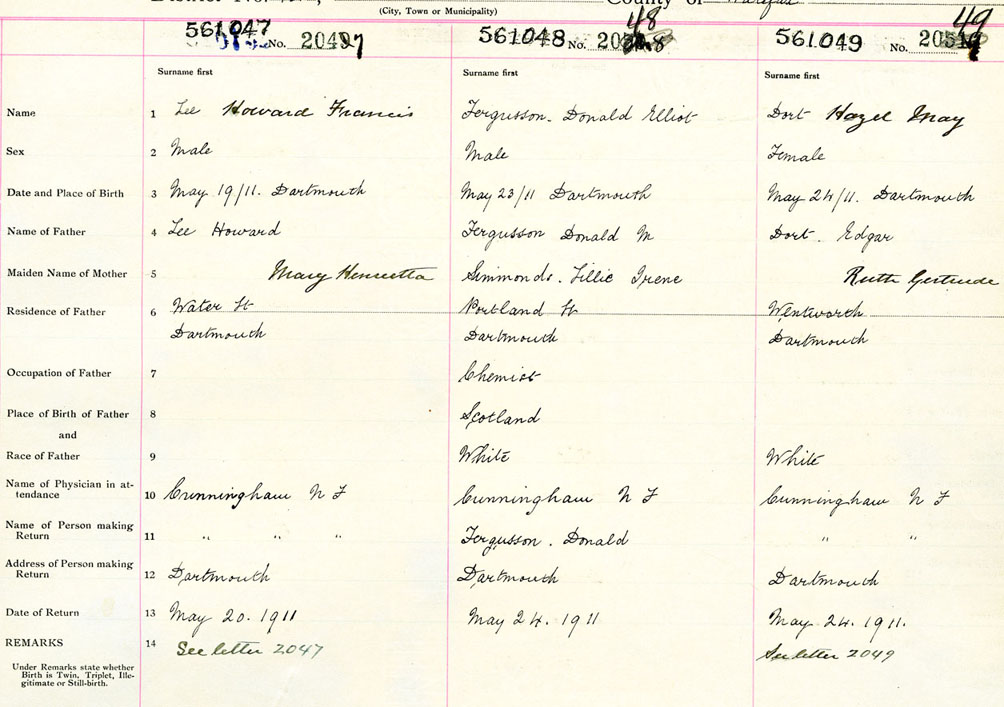 (City, Town or Municipality)
County of Halifax
561047 No. 2047
561048 No. 2048
561049 No. 2049
Surname first
Surname first
Surname first
Name 1 Lee Howard Francis
Fergusson. Donald Elliot
Dort Hazel May
Sex 2 Male
Male
Female
Date and Place of Birth 3 May 19/11. Dartmouth
May 23/11 Dartmouth
May 24/11. Dartmouth
Name of Father 4 Lee Howard
Fergusson Donald M
Dort. Edgar
Maiden Name of Mother 5 Mary Henrietta
Simmonds. Lillie Irene
Ruth Gertrude
Residence of Father 6 Water St
Dartmouth
Portland St
Dartmouth
Wentworth
Dartmouth
Occupation of Father 7
Chemist
Place of Birth of Father 8
and
Scotland
Race of Father 9
White
White
Name of Physician in at-
tendance 10 Cunningham N F
Cunningham N F
Cunningham N F
Name of Person making
Return 11 " " "
Fergusson. Donald
" "
Address of Person making
Return 12 Dartmouth
Dartmouth
Dartmouth
Date of Return 13 May 20. 1911
May 24. 1911
May 24. 1911.
REMARKS 14 See letter 2047
See letter 2049
Under Remarks state whether
Birth is Twin, Triplet, Ille-
gitimate or Still-birth.